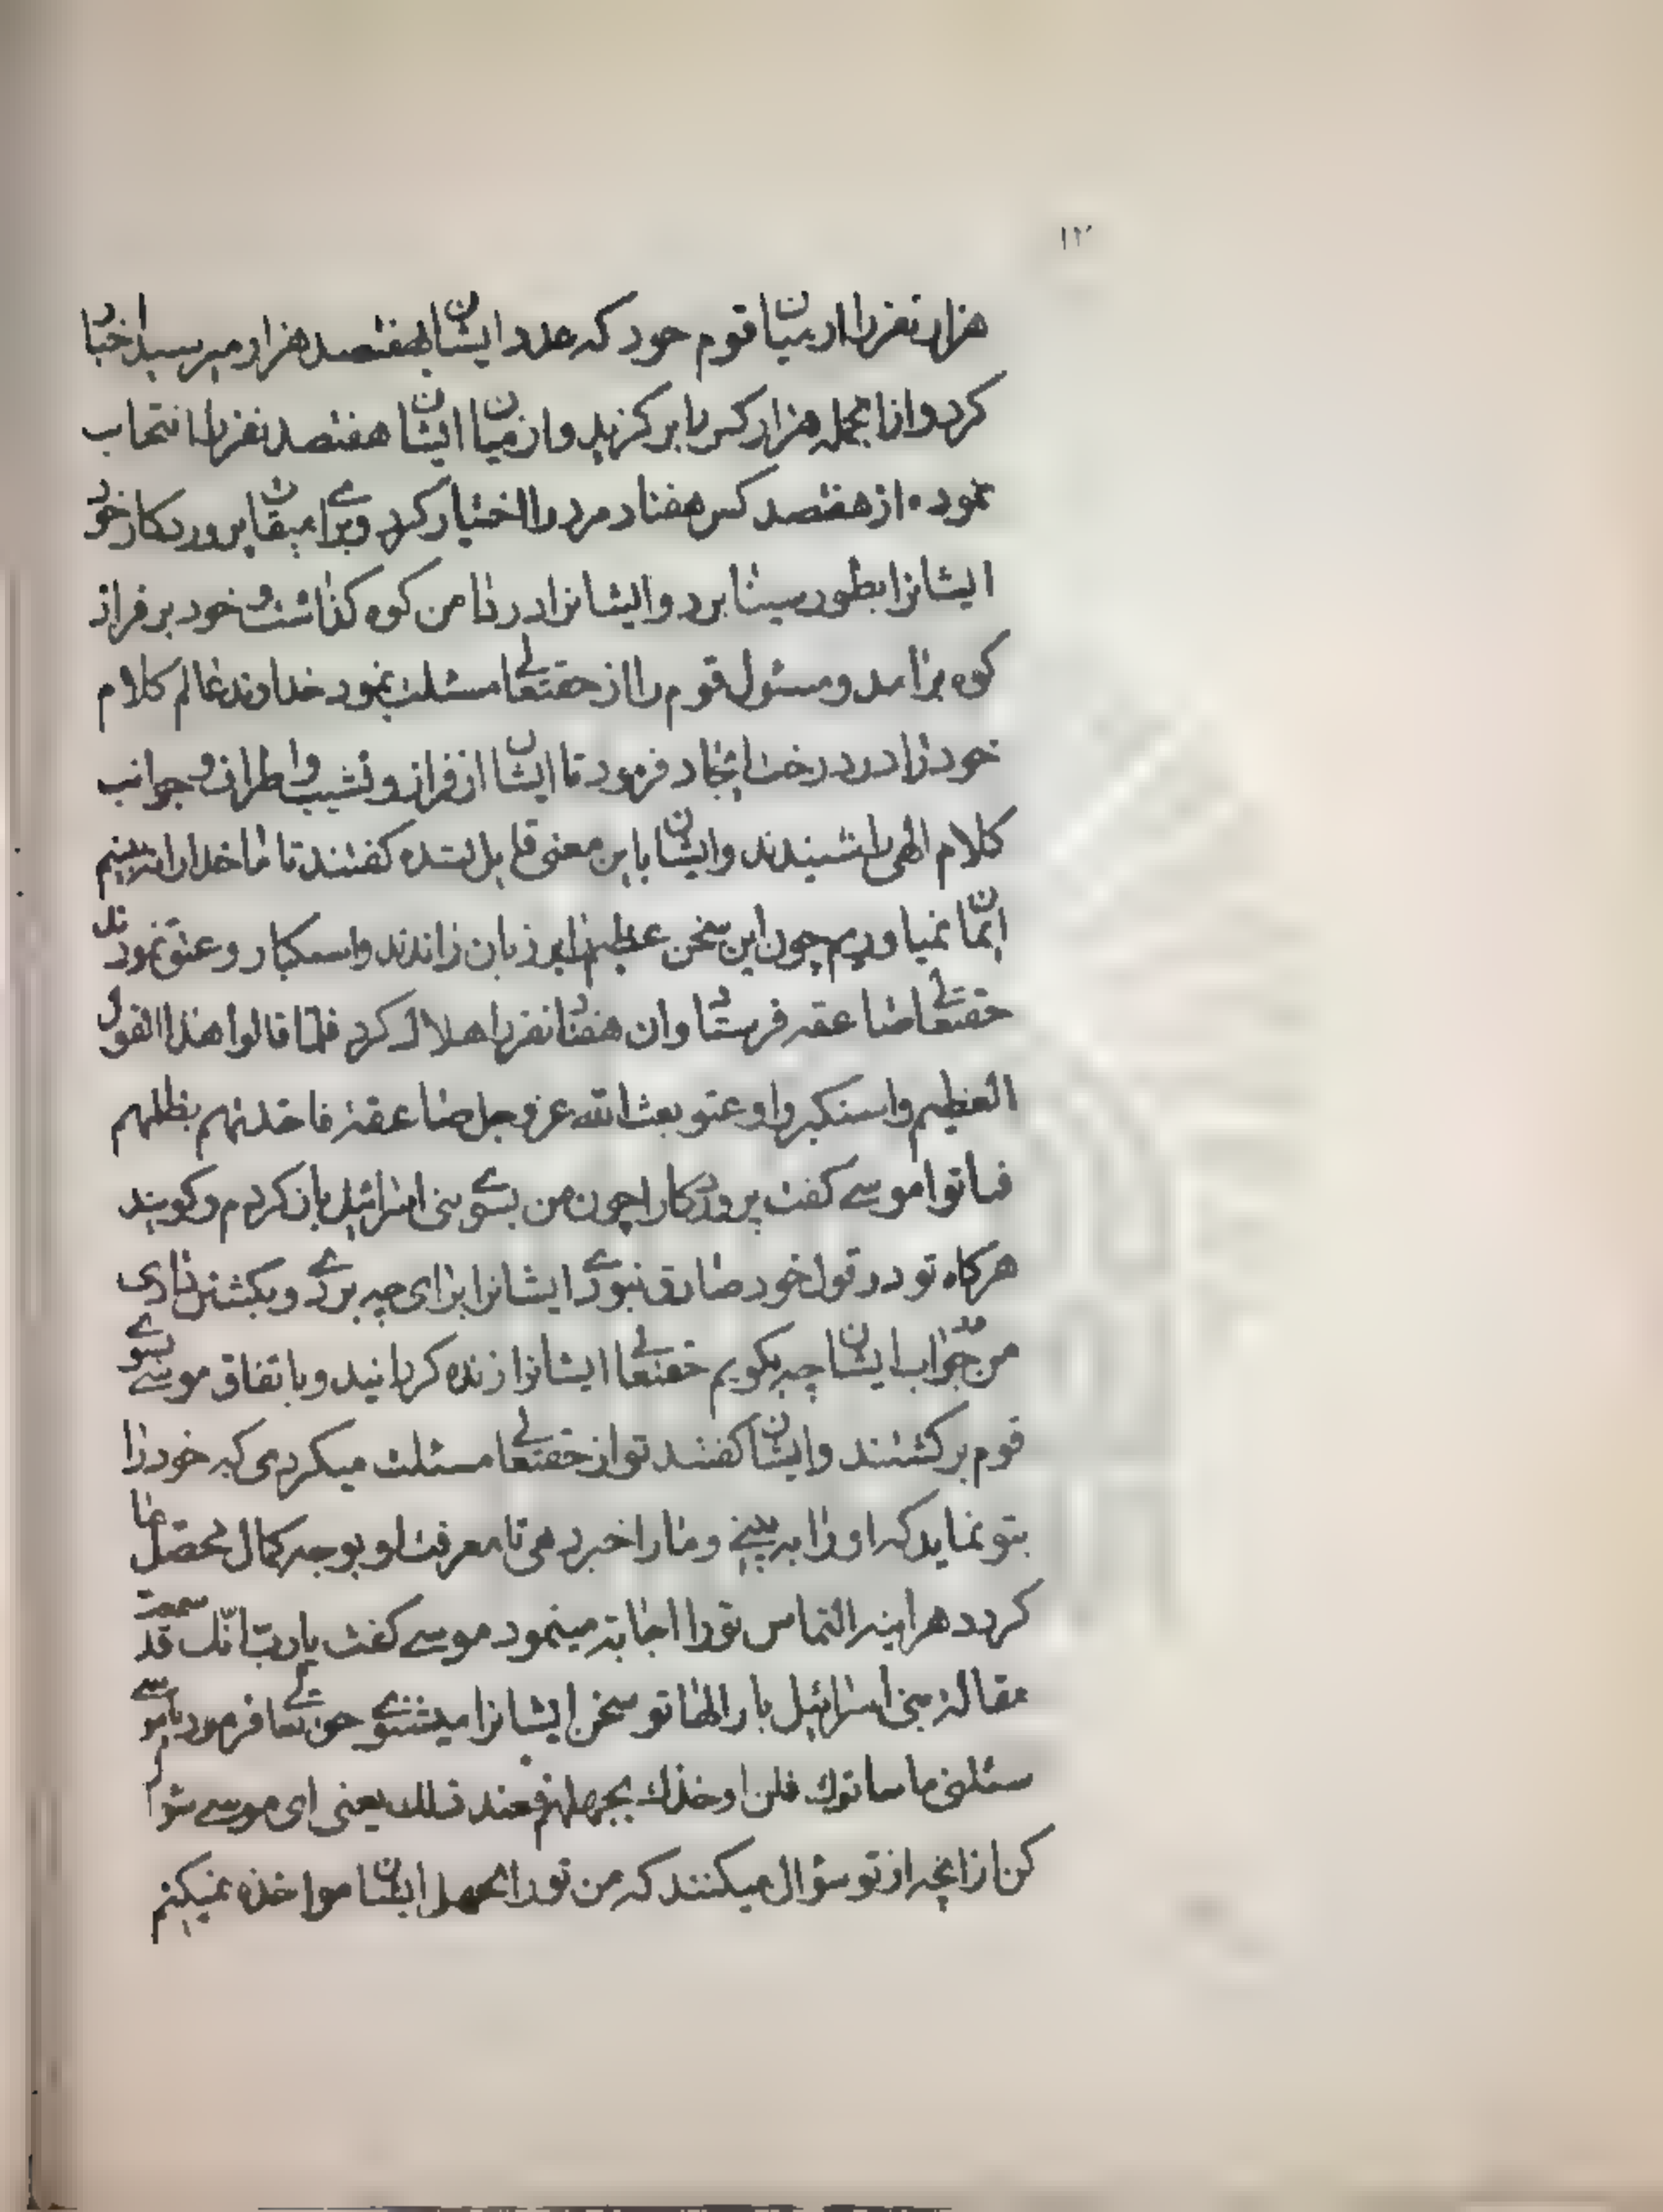 ۱۲
هزار نفر را از میان قوم خود که عدد ایشان بهفتصد هزار میرسید اختیار
کرد و از آنجمله هزار کس را برگزید و از میان ایشان هفتصد نفر را انتخاب
نمود از هفتصد کس هفتاد مرد را اختیار کرد و برای میقات پروردگار خود
ایشانرا بطور سینا برد و ایشانرا در دامن کوه گذاشت و خود بر فراز
کوه برآمد و مسئول قوم را از حقتعالی مسئلت نمود خداوند عالم کلام
خود را در درخت ایجاد فرمود تا ایشان از فراز و نشیب و اطراف و جوانب
کلام الهی را شنیدند و ایشان باین معنی قایل نشده گفتند تا ما خدا را نه بینیم
ایمان نمیاوریم چون این سخن عظیم را بر زبان راندند و استکبار و عتو نمودند
حقتعالی صاعقه فرستاد و آن هفتاد نفر را هلاک کرد فلما قالوا هذا القول
العظیم و استکبروا و عتو بعث الله عز و جل صاعقة فاخذتهم بظلمهم
فماتوا موسی گفت پروردگارا چون من بسوی بنی اسرائیل باز کردم و گویند
هرگاه تو در قول خود صادق نبودی ایشانرا برای چه بردی و بکشتن دادی
من در جواب ایشان چه بگویم حقتعالی ایشانرا زنده گردانید و باتفاق موسی بسوی
قوم برگشتند و ایشان گفتند تو از حقتعالی مسئلت میکردی که خود را
بتو نماید که او را به بینی و ما را خبر دهی تا معرفت او بوجه کمال محصل ما
گردد هر اینه التماس تو را اجابة مینمود موسی گفت یا رب انک قد سمعت
مقالة بنی اسرائیل بار الها تو سخن ایشانرا میشنوی حق تعالی فرمود یا موسی
سئلنی ما سالوک فلن اوخذک بجهلهم فعند ذلک یعنی ای موسی سؤال
کن از آنچه از تو سؤال میکنند که من تو را بجهل ایشان مواخذه نمیکنم